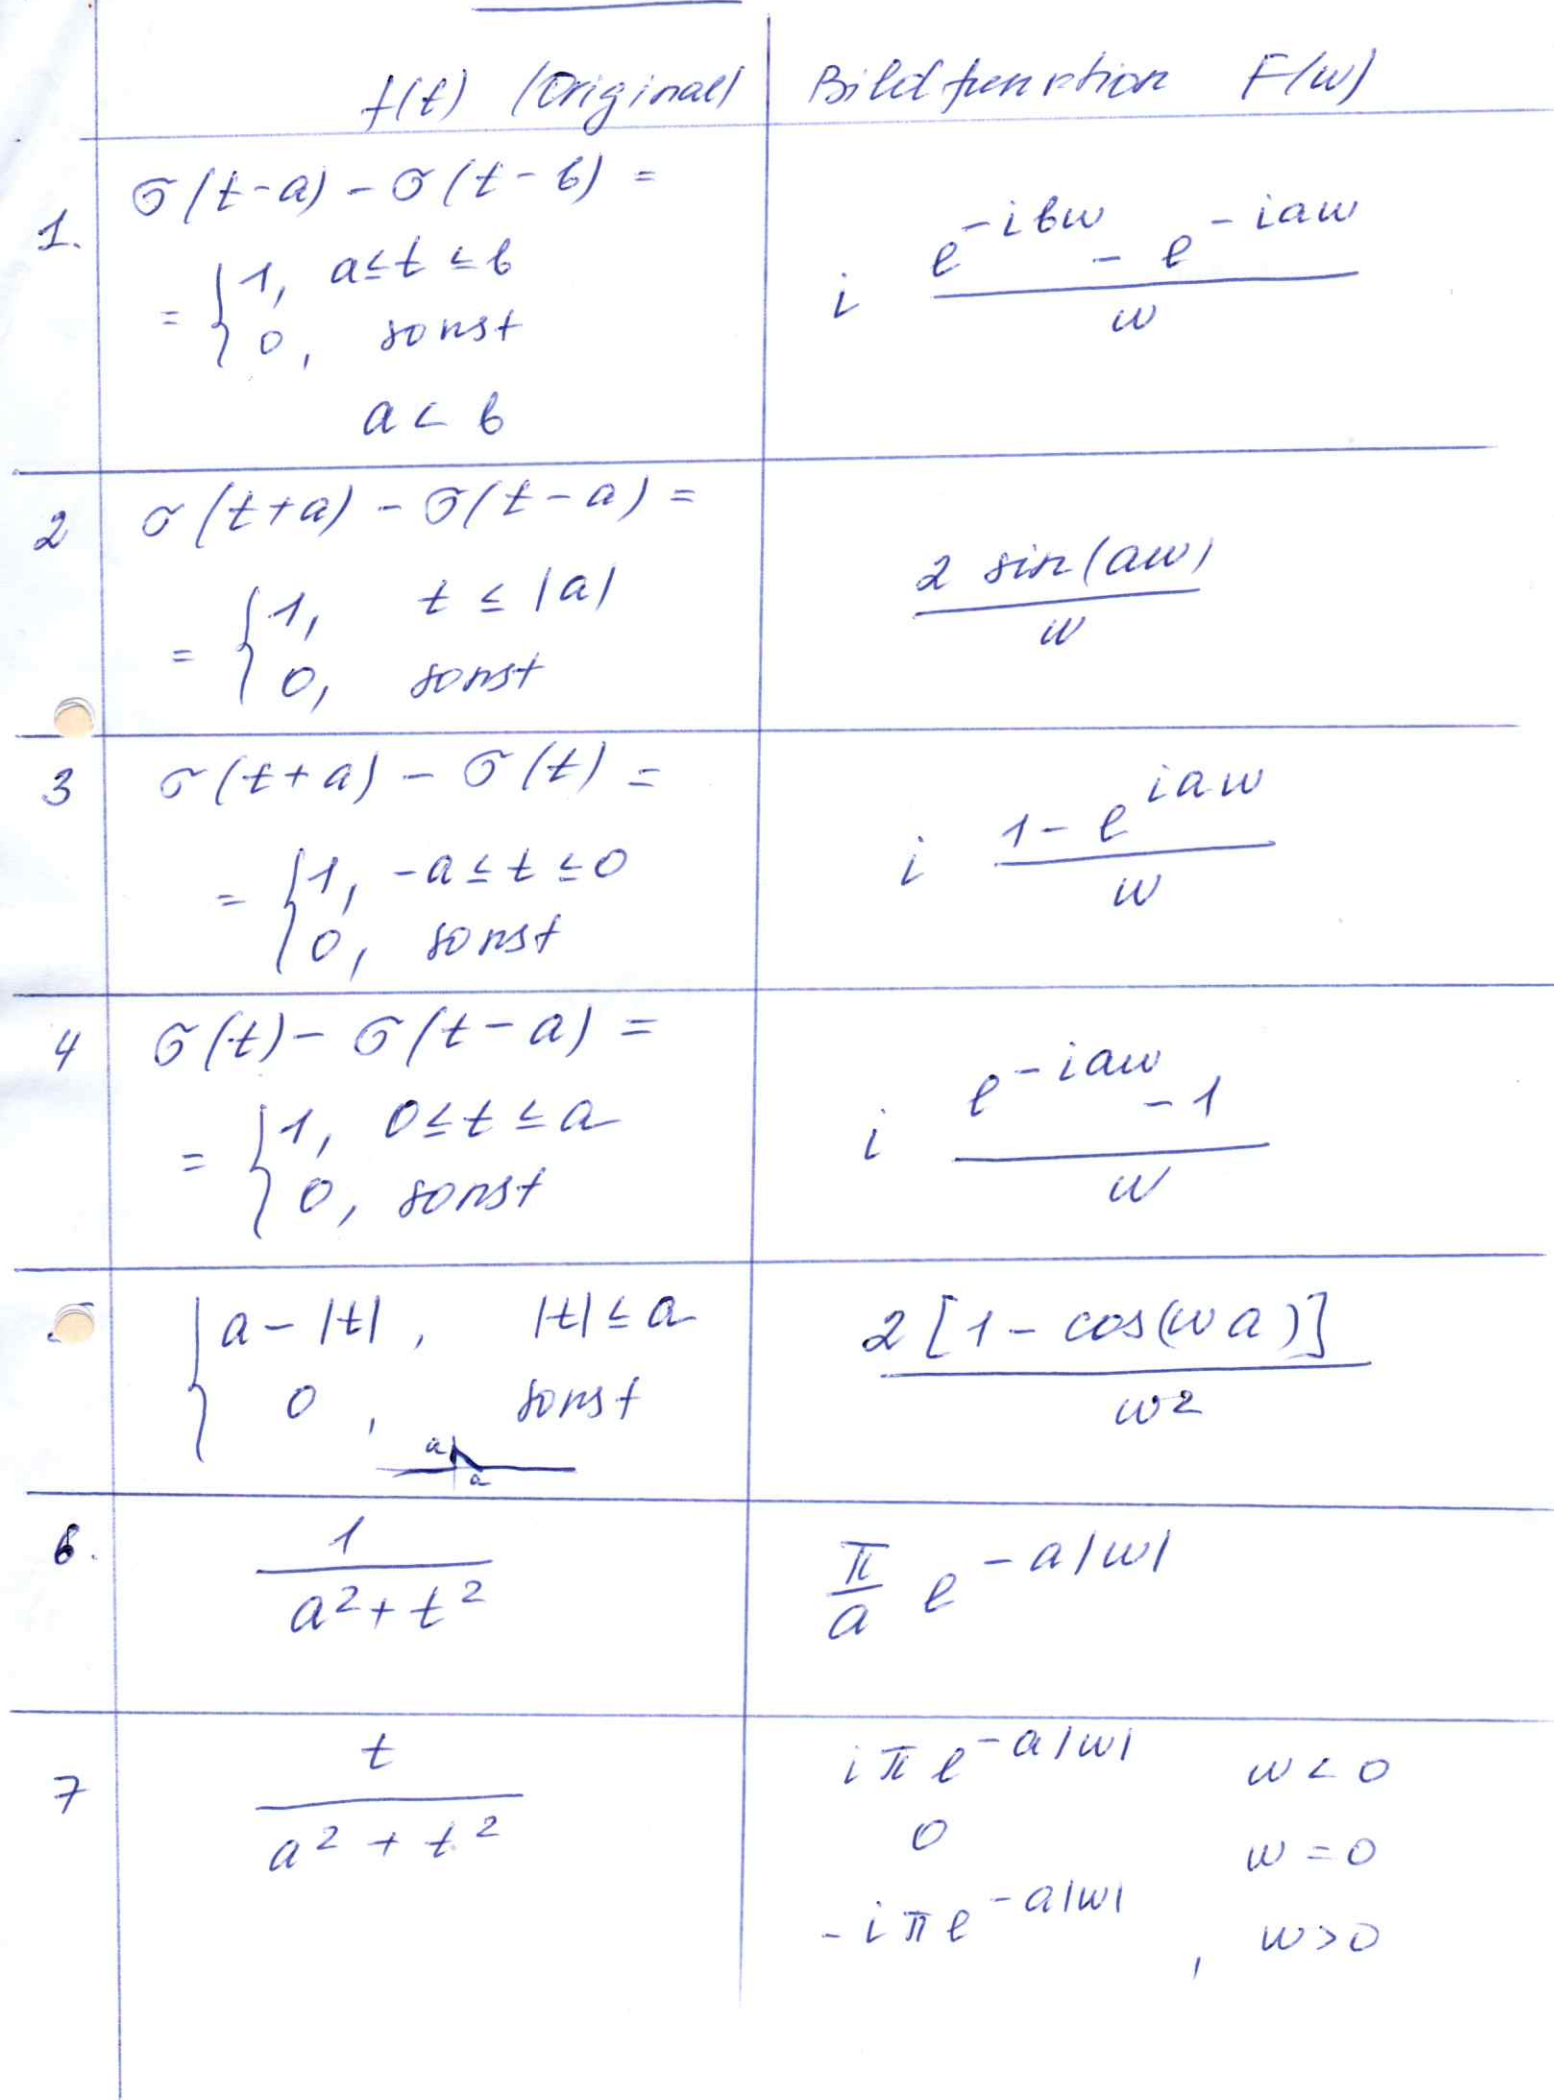 f(t) (Original) Bildfunction F(w)
1. σ(t-a) - σ(t-b) =
= { 1, a≤t≤b
0, sonst
a < b
i (e^{-ibw} - e^{-iaw}) / w
2 σ(t+a) - σ(t-a) =
= { 1, t ≤ |a|
0, sonst
2 sin(aw) / w
3 σ(t+a) - σ(t) =
= { 1, -a≤t≤0
0, sonst
i (1 - e^{iaw}) / w
4 σ(t) - σ(t-a) =
= { 1, 0≤t≤a
0, sonst
i (e^{-iaw} - 1) / w
{ a - |t|, |t| ≤ a
0, sonst
a
a
2[1 - cos(wa)] / w²
6. 1 / (a² + t²)
π/a e^{-a|w|}
7 t / (a² + t²)
iπe^{-a|w|} w < 0
0 w = 0
-iπe^{-a|w|}, w > 0